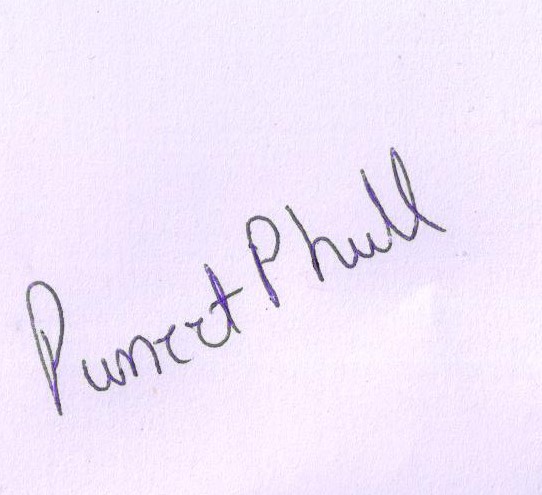 Puneet Phull